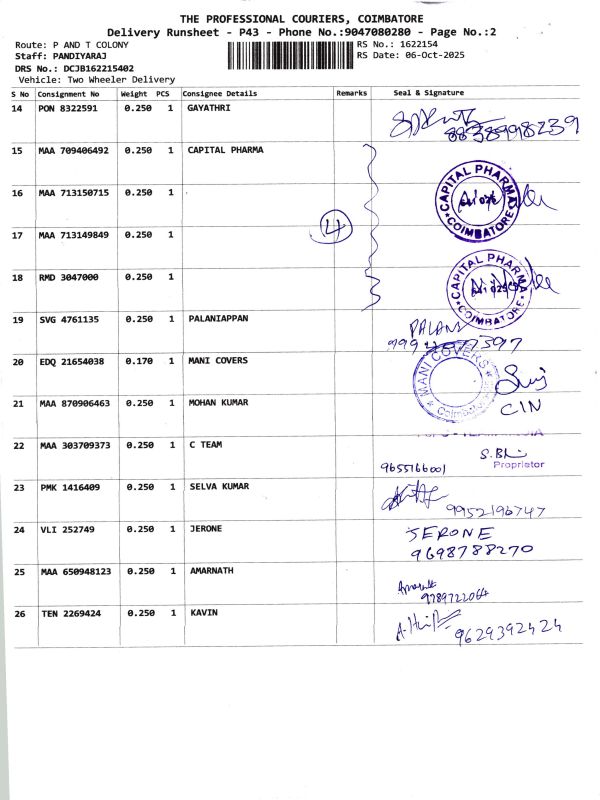 THE PROFESSIONAL COURIERS, COIMBATORE
Delivery Runsheet - P43 - Phone No.:9047080280 - Page No.:2
Route: P AND T COLONY
Staff: PANDIYARAJ
DRS No.: DCJB162215402
Vehicle: Two Wheeler Delivery
RS No.: 1622154
RS Date: 06-Oct-2025
S No Consignment No Weight PCS Consignee Details Remarks Seal & Signature
14 PON 8322591 0.250 1 GAYATHRI
8838998239
15 MAA 709406492 0.250 1 CAPITAL PHARMA
CAPITAL PHARMA
COIMBATORE
16 MAA 713150715 0.250 1
17 MAA 713149849 0.250 1
4
18 RMD 3047000 0.250 1
CAPITAL PHARMA
641 025
COIMBATORE
19 SVG 4761135 0.250 1 PALANIAPPAN
PALANI
20 EDQ 21654038 0.170 1 MANI COVERS
MANI COVERS
Coimbatore
21 MAA 870906463 0.250 1 MOHAN KUMAR
CIN
22 MAA 303709373 0.250 1 C TEAM
9655166001
Proprietor
23 PMK 1416409 0.250 1 SELVA KUMAR
9952196747
24 VLI 252749 0.250 1 JERONE
JERONE
9698788270
25 MAA 650948123 0.250 1 AMARNATH
9789722064
26 TEN 2269424 0.250 1 KAVIN
9629392424